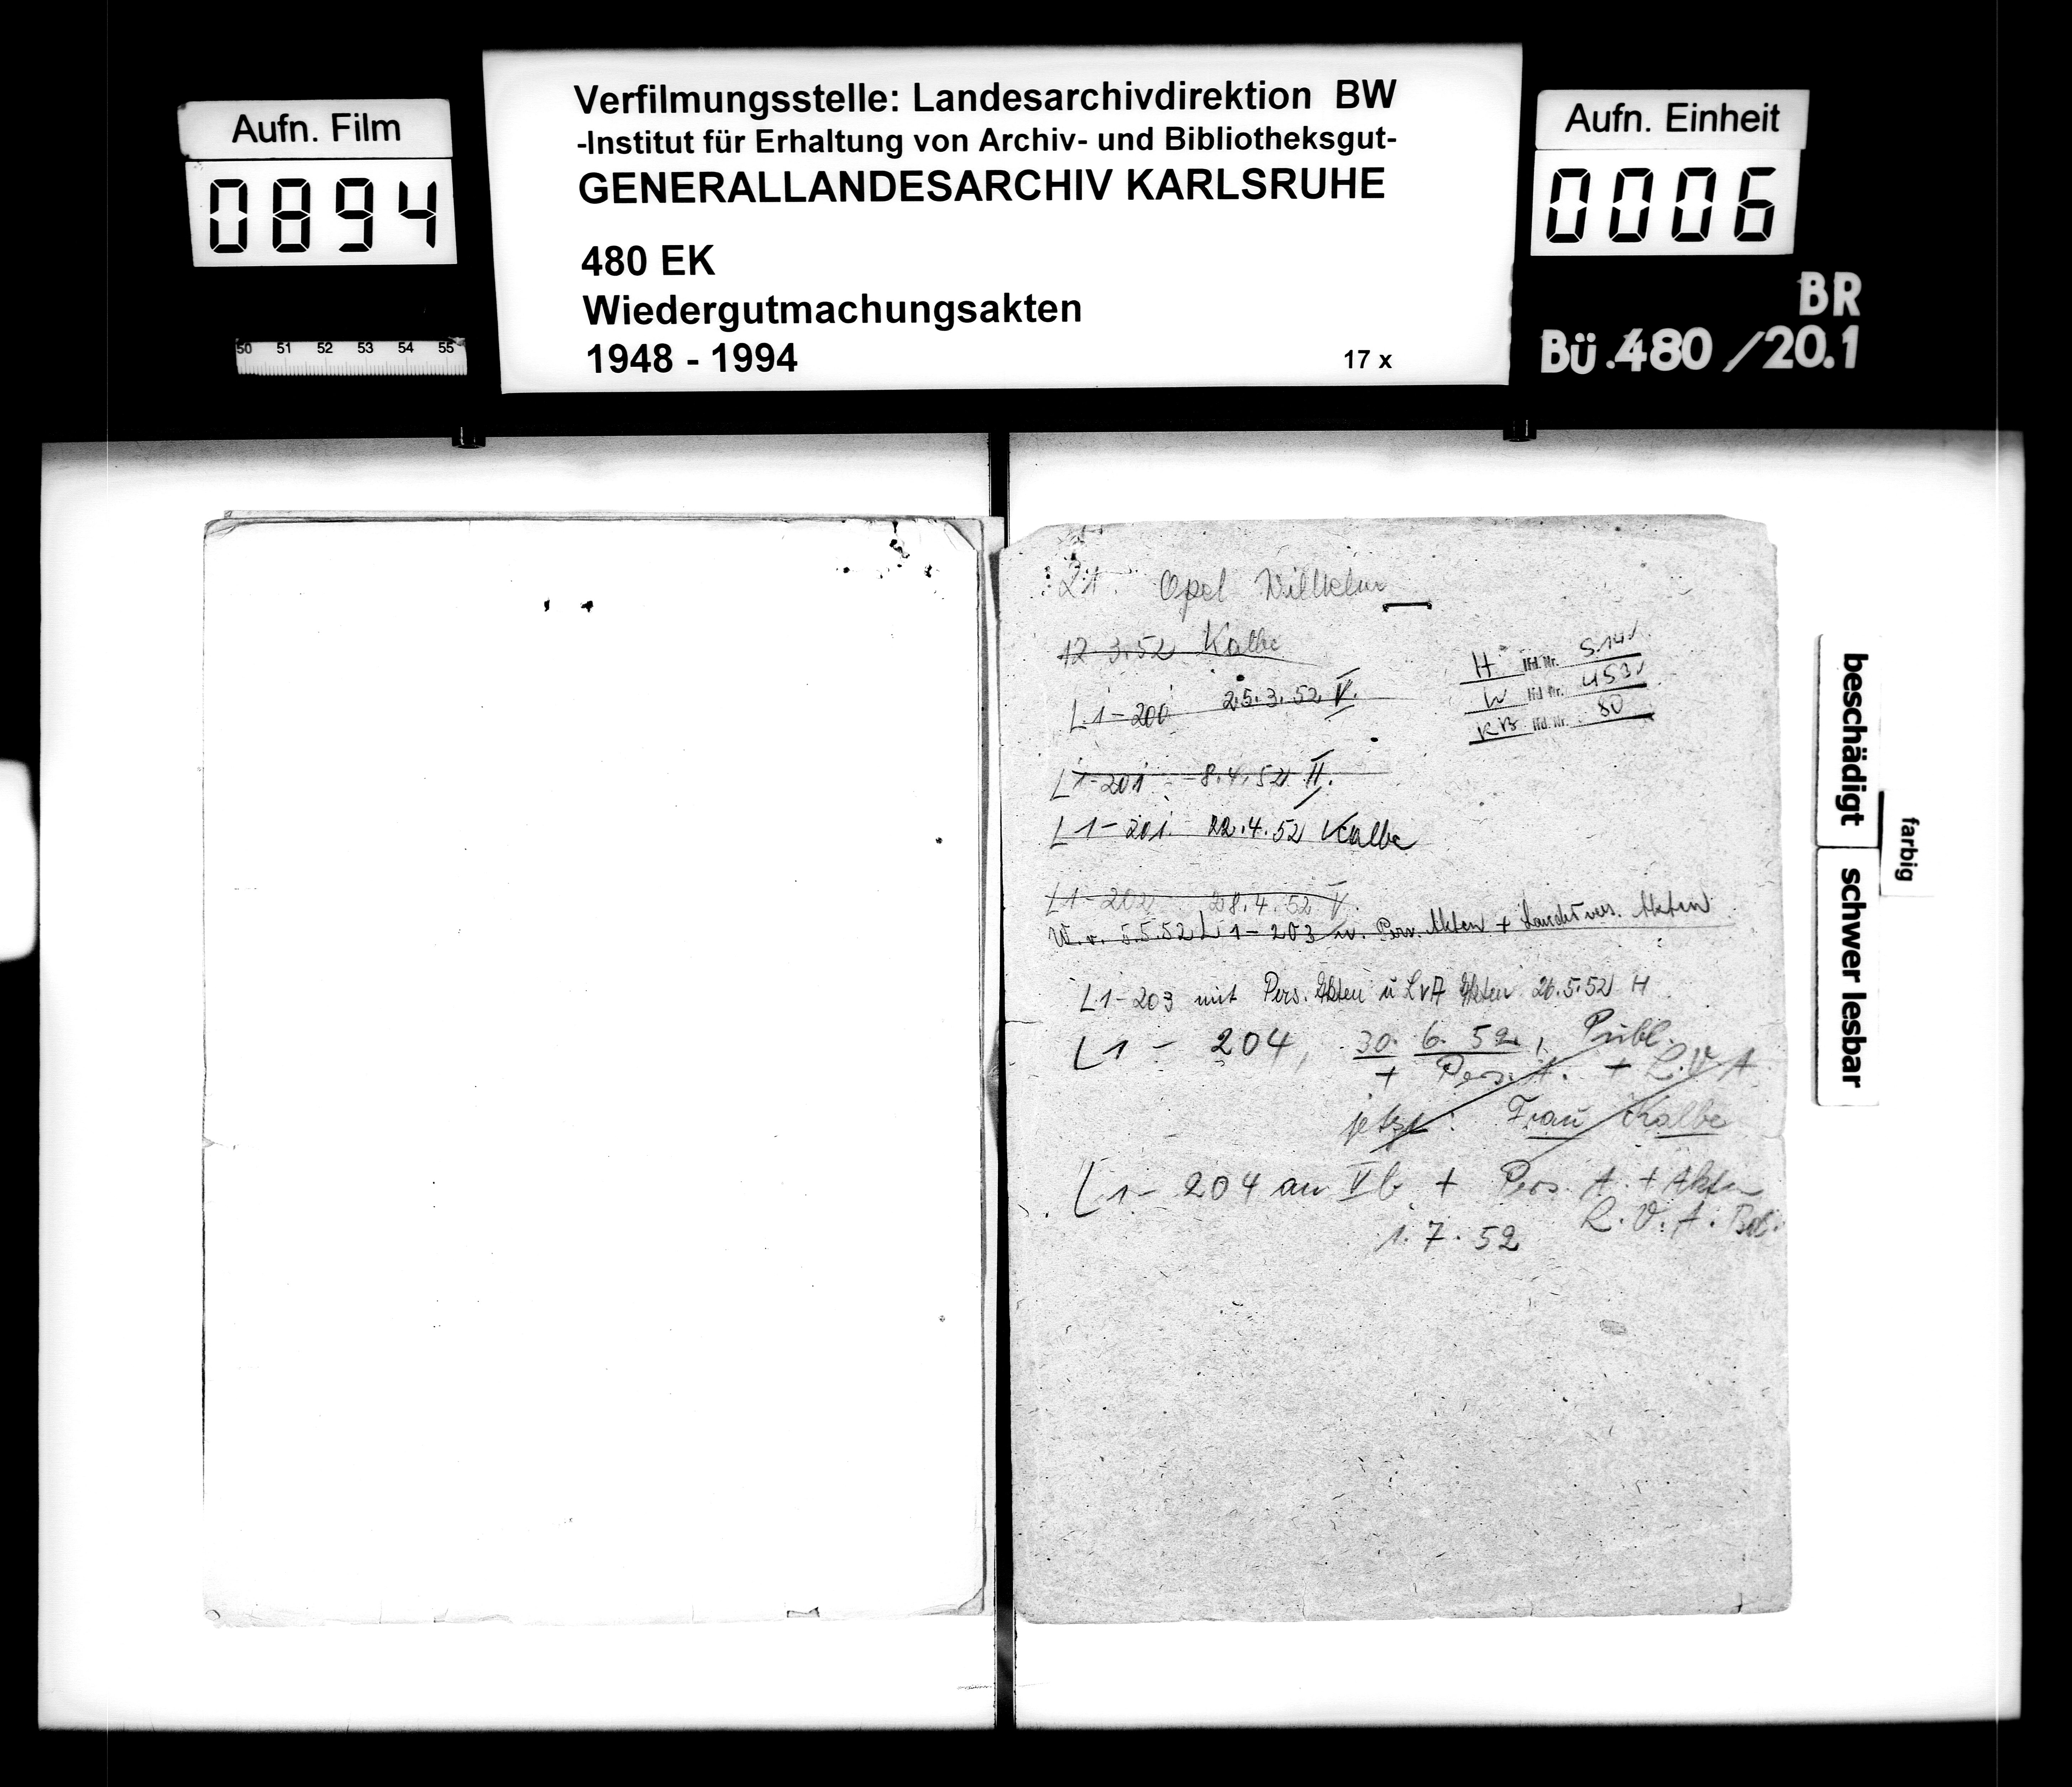 Aufn. Film
0894
Verfilmungsstelle: Landesarchivdirektion BW
-Institut für Erhaltung von Archiv- und Bibliotheksgut-
GENERALLANDESARCHIV KARLSRUHE
480 EK
Wiedergutmachungsakten
1948 - 1994
17 x
Aufn. Einheit
0006
BR
Bü.480/20.1
50 51 52 53 54 55
Opel Wilhelm
12 3.52 Kalbe
H lfd. Nr.
W lfd. Nr. 453
KB lfd. Nr. 80
L 1-200 25.3.52 V.
L 1-201 8.4.52 II.
L 1-201 22.4.52 Kalbe
L1-202 28.4.52 V.
W.v. 5.5.52 L 1-203 Pers. Akten + Akten
L 1-203 mit Pers. Akten u LVA Akten 26.5.52 H
L 1 - 204, 30. 6. 52,
+ Pers. A. + L.V.A.
jetzt: Frau Kalbe
L 1- 204 an Vb + Pers. A. + Akten
L.V.A.
1.7.52
beschädigt
farbig
schwer lesbar